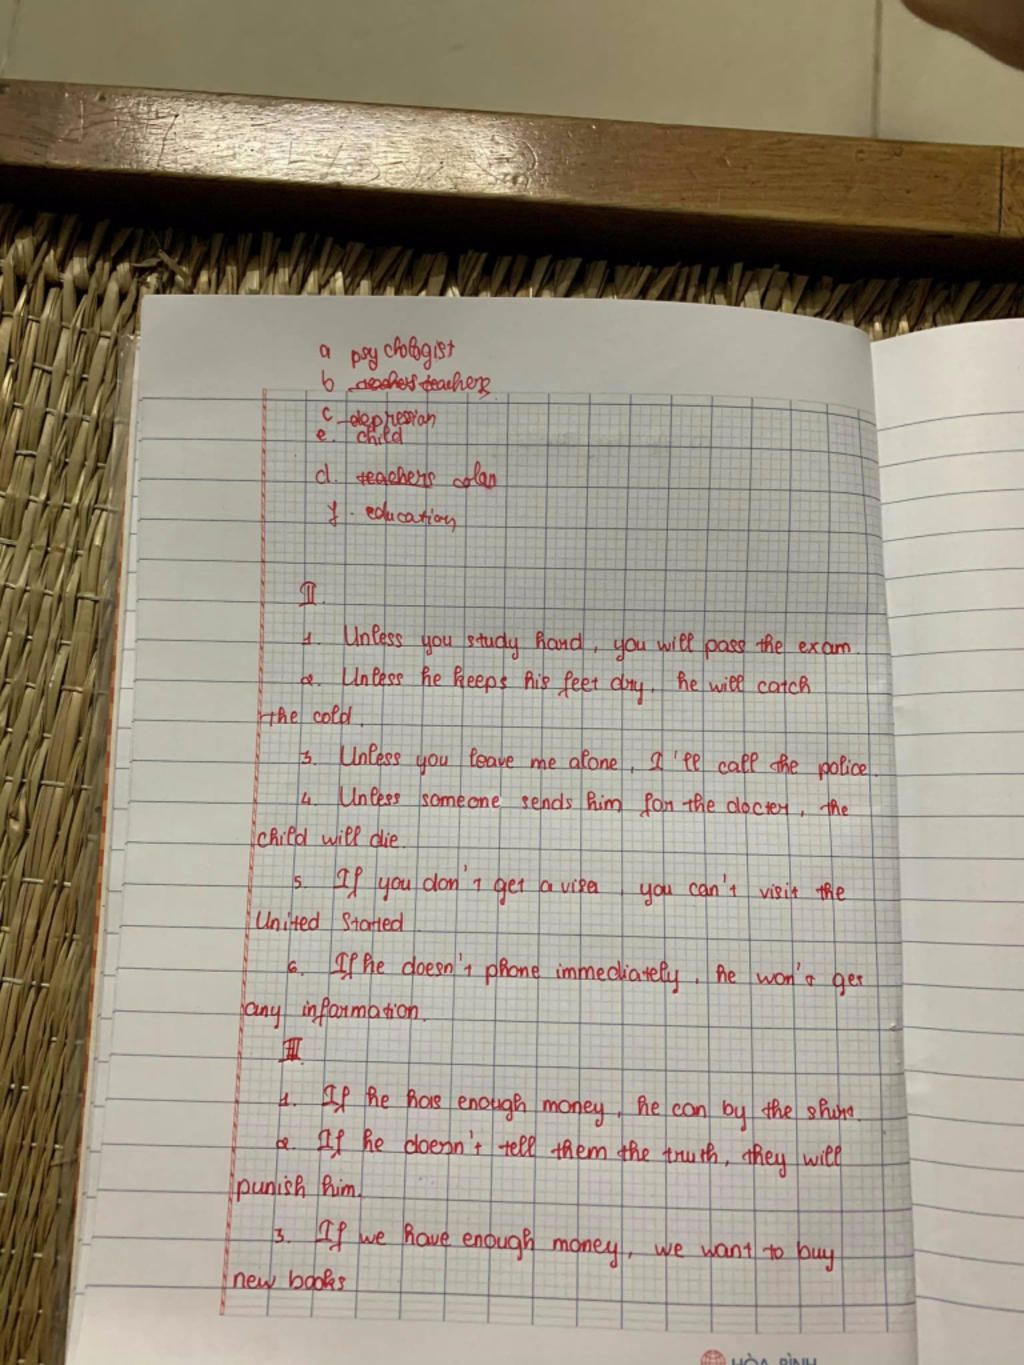 a psychologist
b teachers teachers
c depression
e. child
d. teachers plan
f. education
II.
1. Unless you study hard, you will pass the exam.
2. Unless he keeps his feet dry, he will catch
the cold.
3. Unless you leave me alone, I'll call the police.
4. Unless someone sends him for the docter, the
child will die.
5. If you don't get a visa, you can't visit the
United Started
6. If he doesn't phone immediately, he won't get
any information.
III.
1. If he has enough money, he can by the shirt.
2. If he doesn't tell them the truth, they will
punish him.
3. If we have enough money, we want to buy
new books
HÒA BÌNH